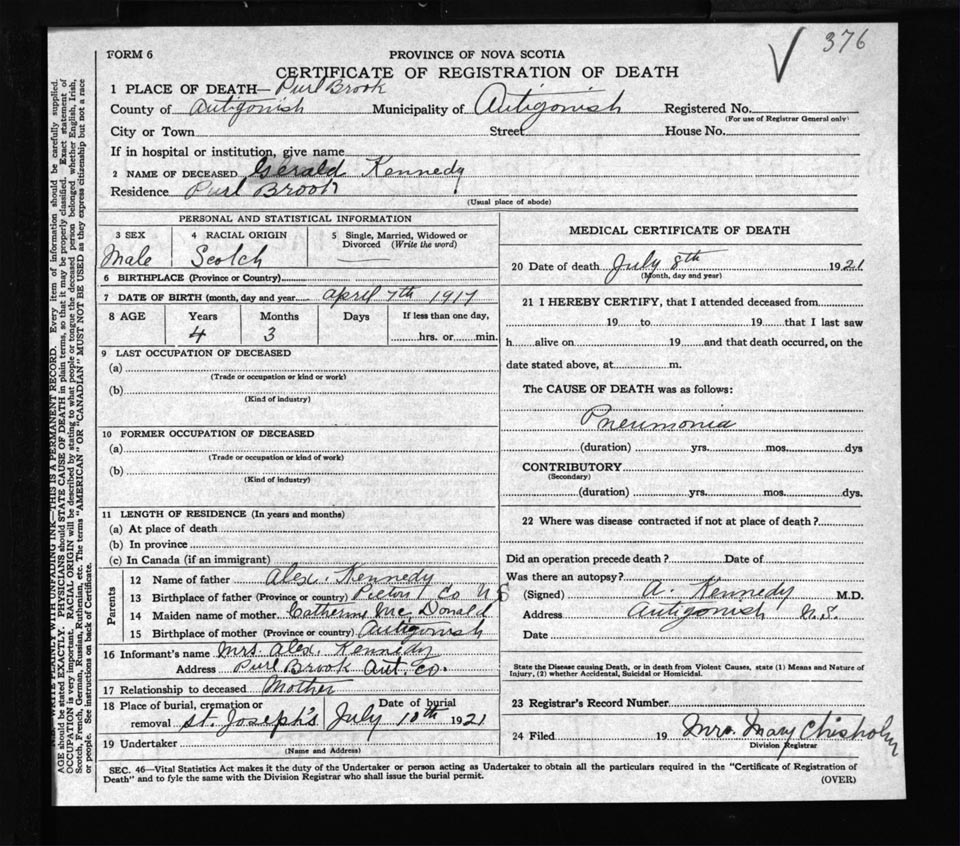 376
FORM 6
PROVINCE OF NOVA SCOTIA
CERTIFICATE OF REGISTRATION OF DEATH
1 PLACE OF DEATH— Purl Brook
County of Antigonish Municipality of Antigonish Registered No.
(For use of Registrar General only)
City or Town Street House No.
If in hospital or institution, give name
2 NAME OF DECEASED Gerald Kennedy
Residence Purl Brook
(Usual place of abode)
PERSONAL AND STATISTICAL INFORMATION
3 SEX 4 RACIAL ORIGIN 5 Single, Married, Widowed or Divorced (Write the word)
Male Scotch —
6 BIRTHPLACE (Province or Country)
7 DATE OF BIRTH (month, day and year April 7th 1917
8 AGE Years Months Days If less than one day,
4 3 hrs. or min.
9 LAST OCCUPATION OF DECEASED
(a)
(Trade or occupation or kind or work)
(b)
(Kind of industry)
10 FORMER OCCUPATION OF DECEASED
(a)
(Trade or occupation or kind of work)
(b)
(Kind of industry)
11 LENGTH OF RESIDENCE (In years and months)
(a) At place of death
(b) In province
(c) In Canada (if an immigrant)
Parents
12 Name of father Alex. Kennedy
13 Birthplace of father (Province or country) Pictou Co N S
14 Maiden name of mother Catherine Mc Donald
15 Birthplace of mother (Province or country) Antigonish
16 Informant's name Mrs. Alex. Kennedy
Address Purl Brook Ant. Co.
17 Relationship to deceased Mother
18 Place of burial, cremation or Date of burial
removal St. Joseph's July 10th 1921
19 Undertaker
(Name and Address)
MEDICAL CERTIFICATE OF DEATH
20 Date of death July 8th 1921
(Month, day and year)
21 I HEREBY CERTIFY, that I attended deceased from
19 to 19 that I last saw
h alive on 19 and that death occurred, on the
date stated above, at m.
The CAUSE OF DEATH was as follows:
Pneumonia
(duration) yrs. mos. dys
CONTRIBUTORY
(Secondary)
(duration) yrs. mos. dys.
22 Where was disease contracted if not at place of death?
Did an operation precede death? Date of
Was there an autopsy?
(Signed) A. Kennedy M.D.
Address Antigonish N.S.
Date
State the Disease causing Death, or in death from Violent Causes, state (1) Means and Nature of
Injury, (2) whether Accidental, Suicidal or Homicidal.
23 Registrar's Record Number
24 Filed 19 Mrs. Mary Chisholm
Division Registrar
SEC. 46—Vital Statistics Act makes it the duty of the Undertaker or person acting as Undertaker to obtain all the particulars required in the "Certificate of Registration of
Death" and to fyle the same with the Division Registrar who shall issue the burial permit.
(OVER)
WRITE PLAINLY WITH UNFADING INK—THIS IS A PERMANENT RECORD. Every item of information should be carefully supplied.
AGE should be stated EXACTLY. PHYSICIANS should STATE CAUSE OF DEATH in plain terms, so that it may be properly classified. Exact statement of
OCCUPATION is very important. RACIAL ORIGIN will be described by stating to what people or tongue the deceased person belonged whether English, Irish,
Scotch, French, German, Russian, Ruthenian, etc. The terms "AMERICAN" OR "CANADIAN" MUST NOT BE USED as they express citizenship but not a race
or people. See instructions on back of Certificate.